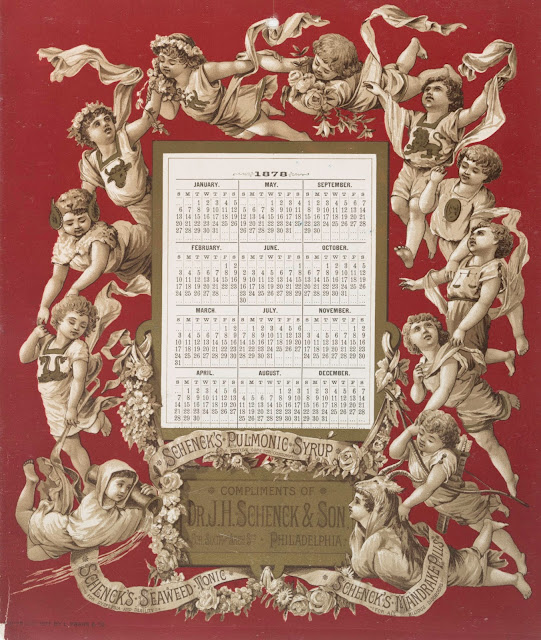 1878
JANUARY.
S M T W T F S
1 2 3 4 5
6 7 8 9 10 11 12
13 14 15 16 17 18 19
20 21 22 23 24 25 26
27 28 29 30 31
MAY.
S M T W T F S
1 2 3 4
5 6 7 8 9 10 11
12 13 14 15 16 17 18
19 20 21 22 23 24 25
26 27 28 29 30 31
SEPTEMBER.
S M T W T F S
1 2 3 4 5 6 7
8 9 10 11 12 13 14
15 16 17 18 19 20 21
22 23 24 25 26 27 28
29 30
FEBRUARY.
S M T W T F S
1 2
3 4 5 6 7 8 9
10 11 12 13 14 15 16
17 18 19 20 21 22 23
24 25 26 27 28
JUNE.
S M T W T F S
1
2 3 4 5 6 7 8
9 10 11 12 13 14 15
16 17 18 19 20 21 22
23 24 25 26 27 28 29
30
OCTOBER.
S M T W T F S
1 2 3 4 5
6 7 8 9 10 11 12
13 14 15 16 17 18 19
20 21 22 23 24 25 26
27 28 29 30 31
MARCH.
S M T W T F S
1 2
3 4 5 6 7 8 9
10 11 12 13 14 15 16
17 18 19 20 21 22 23
24 25 26 27 28 29 30
31
JULY.
S M T W T F S
1 2 3 4 5 6
7 8 9 10 11 12 13
14 15 16 17 18 19 20
21 22 23 24 25 26 27
28 29 30 31
NOVEMBER.
S M T W T F S
1 2
3 4 5 6 7 8 9
10 11 12 13 14 15 16
17 18 19 20 21 22 23
24 25 26 27 28 29 30
APRIL.
S M T W T F S
1 2 3 4 5 6
7 8 9 10 11 12 13
14 15 16 17 18 19 20
21 22 23 24 25 26 27
28 29 30
AUGUST.
S M T W T F S
1 2 3
4 5 6 7 8 9 10
11 12 13 14 15 16 17
18 19 20 21 22 23 24
25 26 27 28 29 30 31
DECEMBER.
S M T W T F S
1 2 3 4 5 6 7
8 9 10 11 12 13 14
15 16 17 18 19 20 21
22 23 24 25 26 27 28
29 30 31
SCHENCK'S PULMONIC SYRUP
COMPLIMENTS OF
DR. J.H. SCHENCK & SON
PHILADELPHIA.
SCHENCK'S SEAWEED TONIC
SCHENCK'S MANDRAKE PILLS